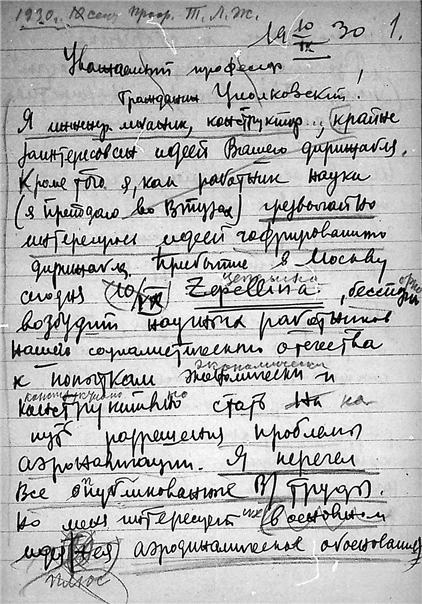 1930. 12 сент. Проф. Т. Л. Ж.
19 10/IX 30 1.
Уважаемый профессор
Гражданин Циолковский!
Я инженер механик, конструктор, крайне
заинтересован идеей Вашего дирижабля.
Кроме того я, как работник науки
(я преподаю во Втузах) чрезвычайно
интересуюсь идеей гофрированного
дирижабля, прибытие в Москву
цеппелина
сегодня (10/IX) Zepellin'а, бесспорно
возбудит научных работников
нашего социалистического отечества
экономически
к попыткам экономически и
конструктивно но
конструктивно стать на на
путь разрешения проблемы
аэронавигации. Я перечел
Все опубликованные В/ труды.
Но меня интересует их (в основном
идея аэродинамическое обоснование
плюс